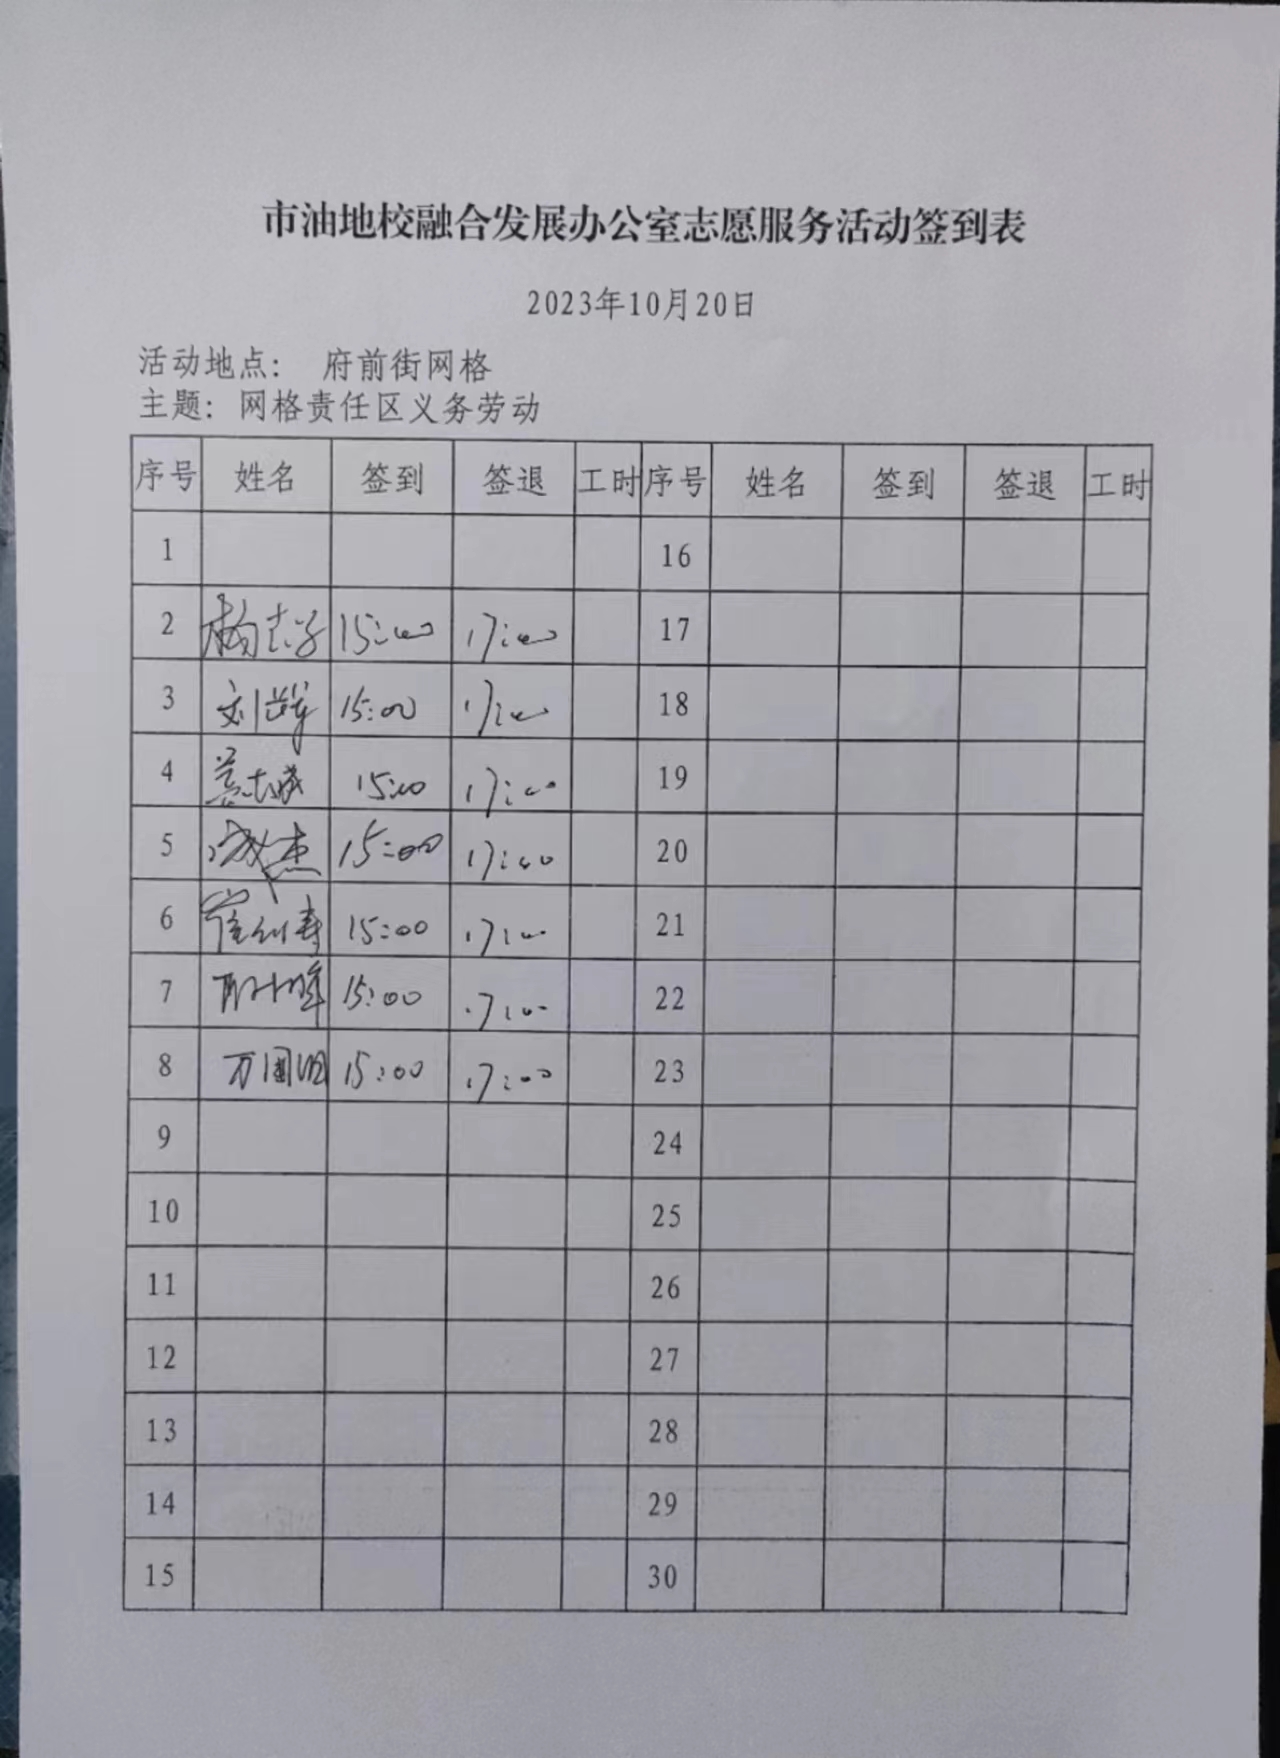 市油地校融合发展办公室志愿服务活动签到表
2023年10月20日
活动地点： 府前街网格
主题：网格责任区义务劳动
序号 姓名 签到 签退 工时 序号 姓名 签到 签退 工时
1 16
2 15:00 17:00 17
3 15:00 17:00 18
4 15:00 17:00 19
5 15:00 17:00 20
6 15:00 17:00 21
7 15:00 17:00 22
8 15:00 17:00 23
9 24
10 25
11 26
12 27
13 28
14 29
15 30